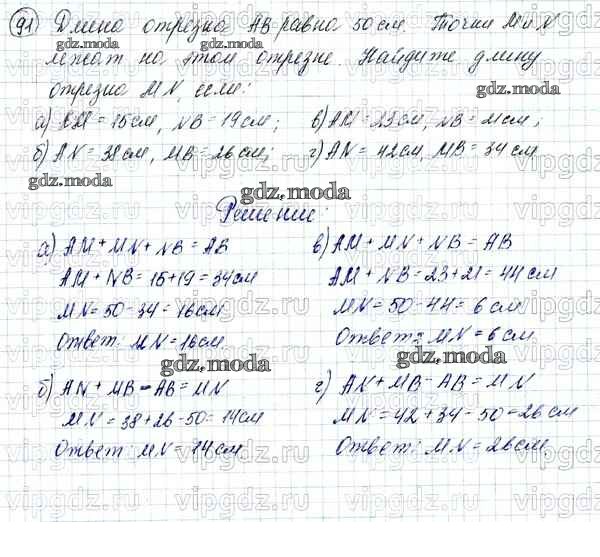 91) Длина отрезка AB равна 50 см. Точки M и N
лежат на этом отрезке. Найдите длину
отрезка MN, если:
gdz.moda
а) AM = 15 см, NB = 19 см; в) AM = 23 см, NB = 21 см;
б) AN = 38 см, MB = 26 см; г) AN = 42 см, MB = 34 см
gdz.moda
gdz.moda
Решение:
а) AM + MN + NB = AB
AM + NB = 15 + 19 = 34 см
MN = 50 - 34 = 16 см
Ответ: MN = 16 см.
gdz.moda
б) AN + MB - AB = MN
MN = 38 + 26 - 50 = 14 см
Ответ: MN = 14 см.
в) AM + MN + NB = AB
AM + NB = 23 + 21 = 44 см
MN = 50 - 44 = 6 см
Ответ: MN = 6 см.
gdz.moda
г) AN + MB - AB = MN
MN = 42 + 34 - 50 = 26 см
Ответ: MN = 26 см.
vipgdz.ru